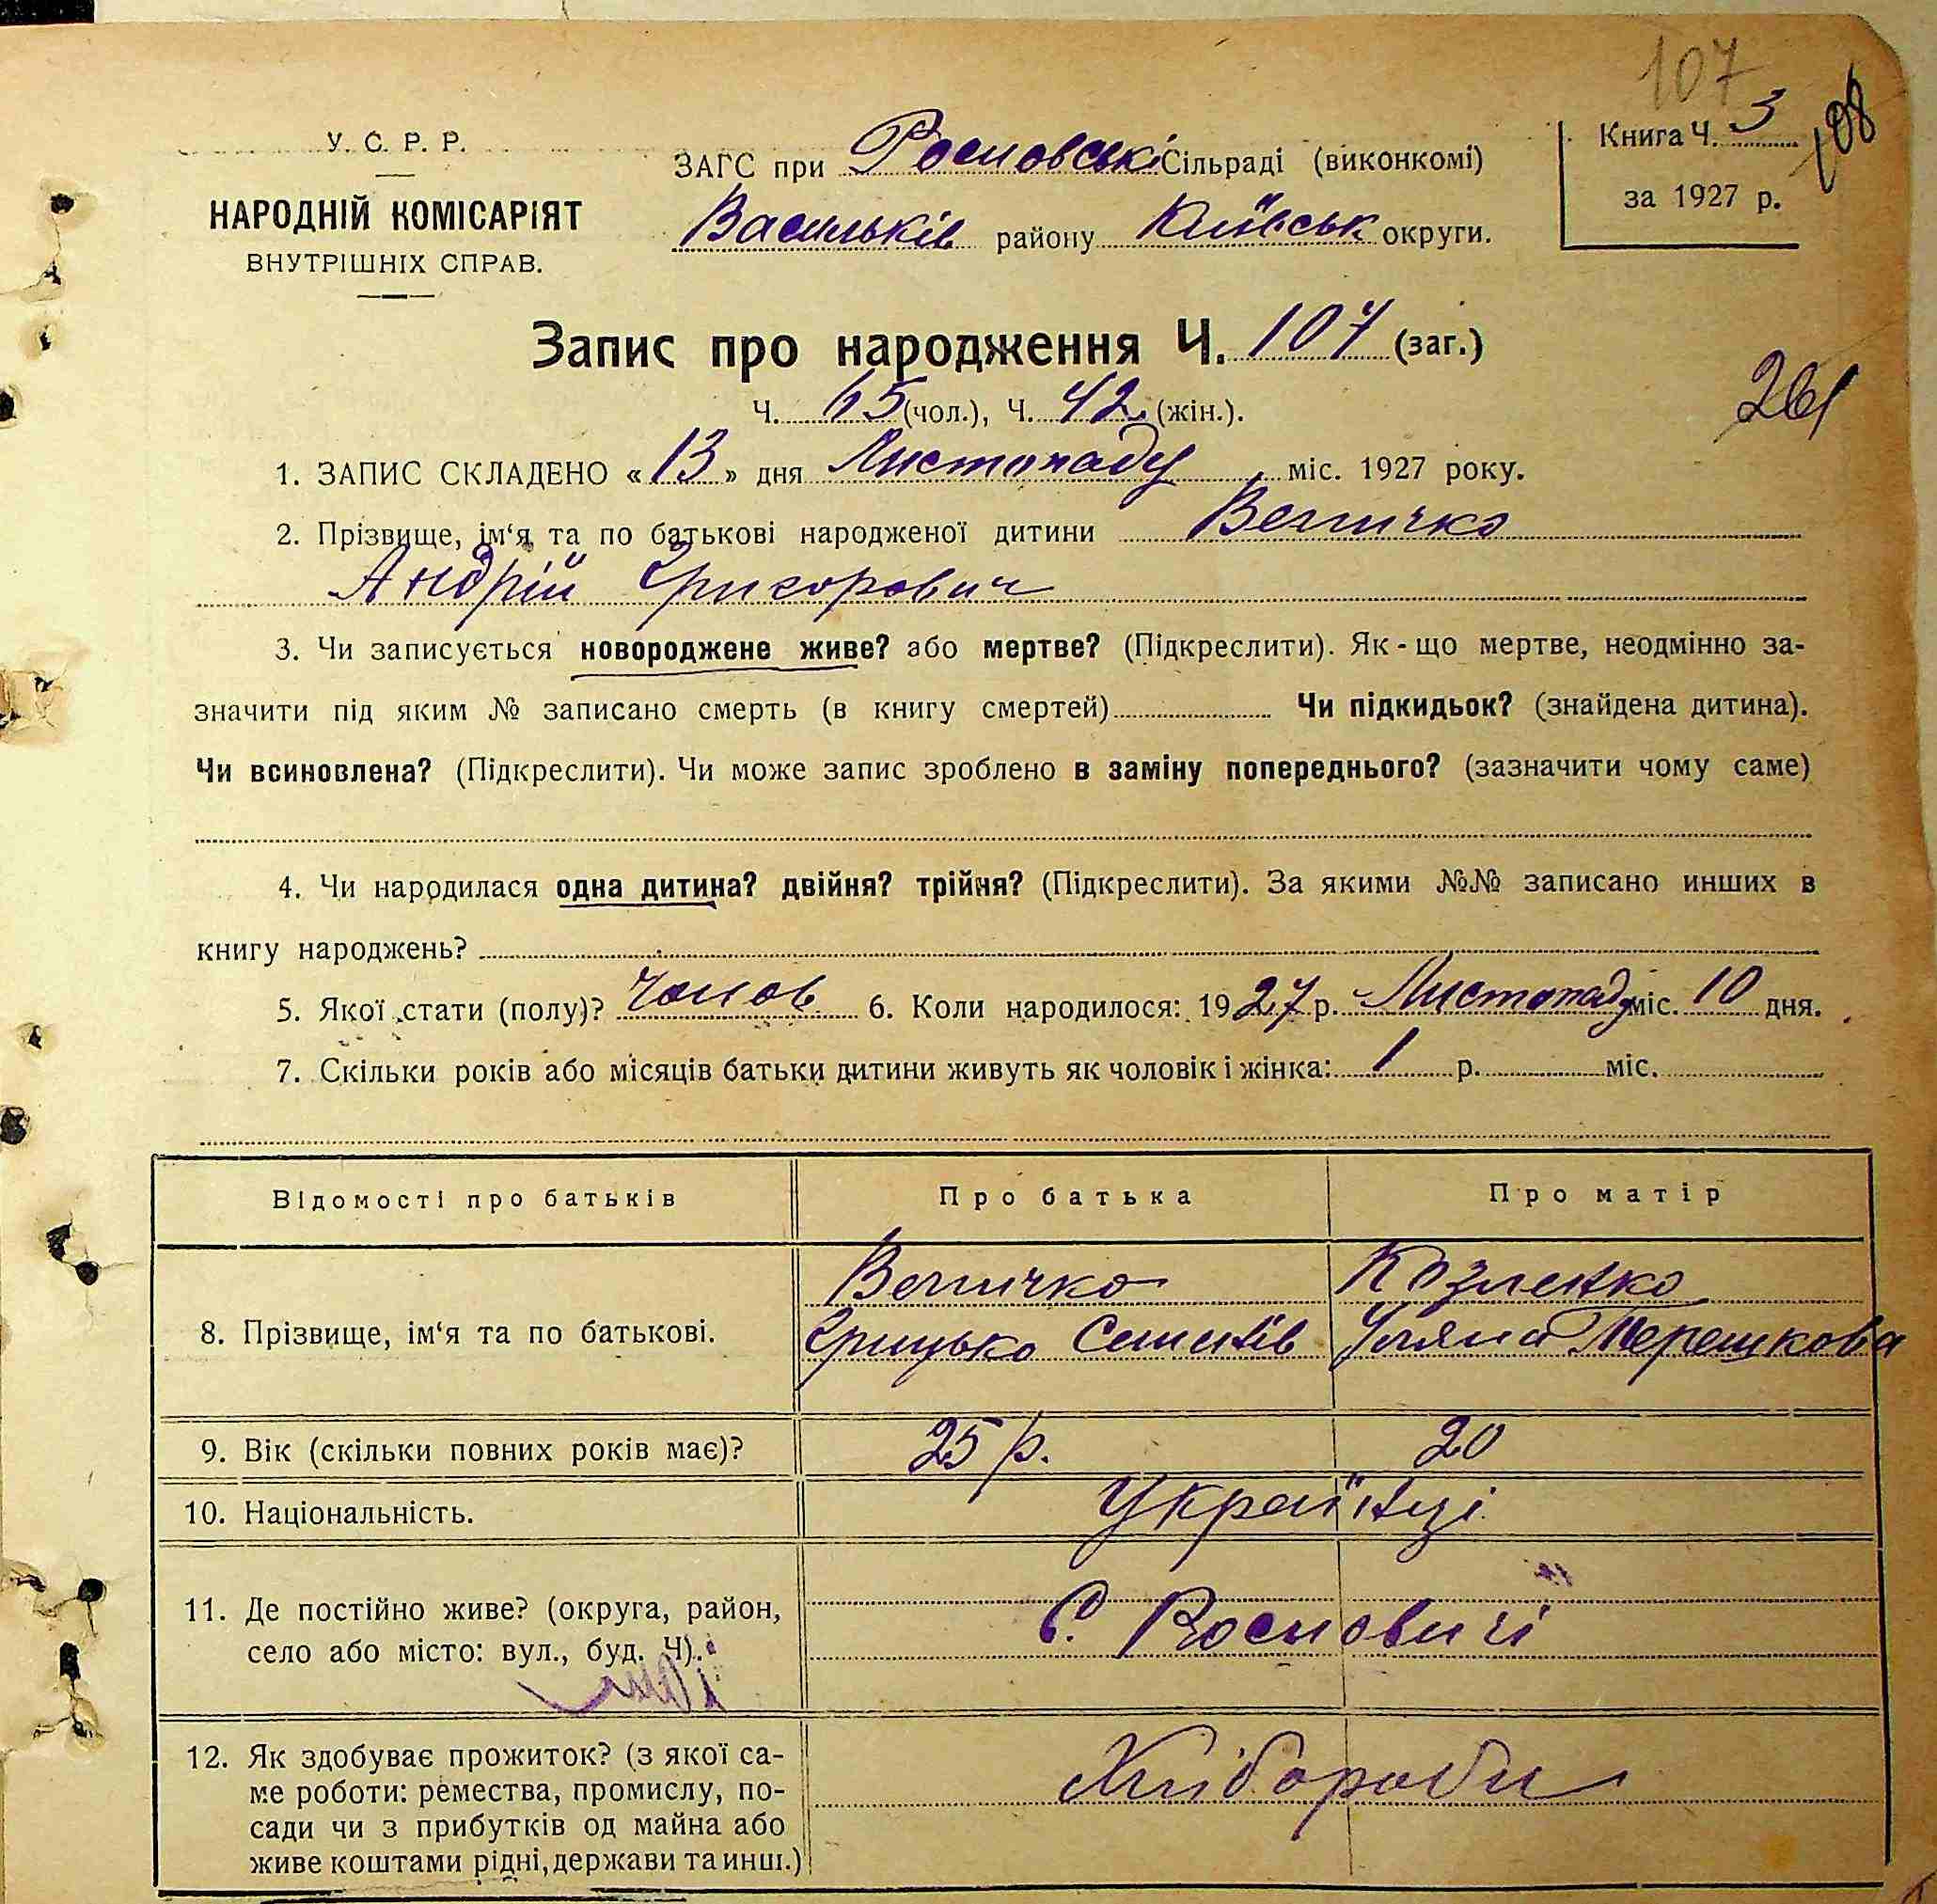 107
У. С. Р. Р.
НАРОДНІЙ КОМІСАРІЯТ
ВНУТРІШНІХ СПРАВ.
ЗАГС при Росновські Сільраді (виконкомі)
Васильків району Київськ округи.
Книга Ч. 3
за 1927 р.
108
Запис про народження Ч. 107 (заг.)
Ч. 65 (чол.), Ч. 42 (жін.).
261
1. ЗАПИС СКЛАДЕНО «13» дня Листопаду міс. 1927 року.
2. Прізвище, ім‘я та по батькові народженої дитини Величко
Андрій Григорович
3. Чи записується новороджене живе? або мертве? (Підкреслити). Як-що мертве, неодмінно за-
значити під яким № записано смерть (в книгу смертей) Чи підкидьок? (знайдена дитина).
Чи всиновлена? (Підкреслити). Чи може запис зроблено в заміну попереднього? (зазначити чому саме)
4. Чи народилася одна дитина? двійня? трійня? (Підкреслити). За якими №№ записано инших в
книгу народжень?
5. Якої стати (полу)? Чолов. 6. Коли народилося: 1927 р. Листопаду міс. 10 дня.
7. Скільки років або місяців батьки дитини живуть як чоловік і жінка: 1 р. міс.
Відомості про батьків Про батька Про матір
8. Прізвище, ім‘я та по батькові. Величко Козленко
Грицько Семенів Уляна Терешкова
9. Вік (скільки повних років має)? 25 р. 20
10. Національність. Українці
11. Де постійно живе? (округа, район,
село або місто: вул., буд. Ч). С. Росновичі
12. Як здобуває прожиток? (з якої са-
ме роботи: ремества, промислу, по-
сади чи з прибутків од майна або
живе коштами рідні, держави та инш.) Хлібороби